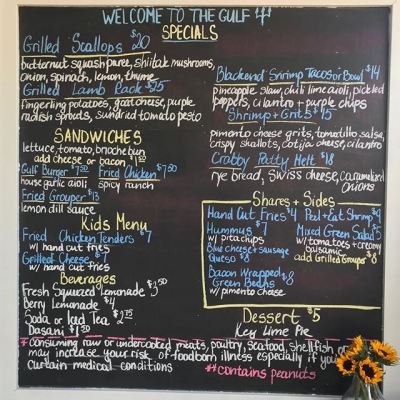 WELCOME TO THE GULF
SPECIALS
Grilled Scallops $20
butternut squash puree, shiitak mushrooms,
onion, spinach, lemon, thyme
Grilled Lamb Rack $25
fingerling potatoes, goat cheese, purple
radish sprouts, sundried tomato pesto
Blackened Shrimp Tacos or Bowl $14
pineapple slaw, chili lime aioli, pickled
peppers, cilantro + purple chips
Shrimp + Grits $15
pimento cheese grits, tomatillo salsa,
crispy shallots, cotija cheese, cilantro
Crabby Patty Melt $18
rye bread, Swiss cheese, caramelized
onions
SANDWICHES
lettuce, tomato, brioche bun
add cheese or bacon $1.50
Gulf Burger $7.50 Fried Chicken $7.50
house garlic aioli spicy ranch
Fried Grouper $13
lemon dill sauce
Kids Menu
Fried Chicken Tenders $7
w/ hand cut fries
Grilled Cheese $7
w/ hand cut fries
Beverages
Fresh Squeezed Lemonade $3.50
Berry Lemonade $4
Soda or Iced Tea $2.75
Dasani $1.50
Shares + Sides
Hand Cut Fries $4
Hummus $7
w/ pita chips
Blue cheese + sausage
Queso $8
Bacon Wrapped $8
Green Beans
w/ pimento cheese
Peel + Eat Shrimp $9
Mixed Green Salad $5
w/ tomatoes + creamy
balsamic
add Grilled Grouper $8
Dessert $5
Key Lime Pie
*consuming raw or undercooked meats, poultry, seafood, shellfish
may increase your risk of foodborn illness especially if you
curtain medical conditions
** contains peanuts